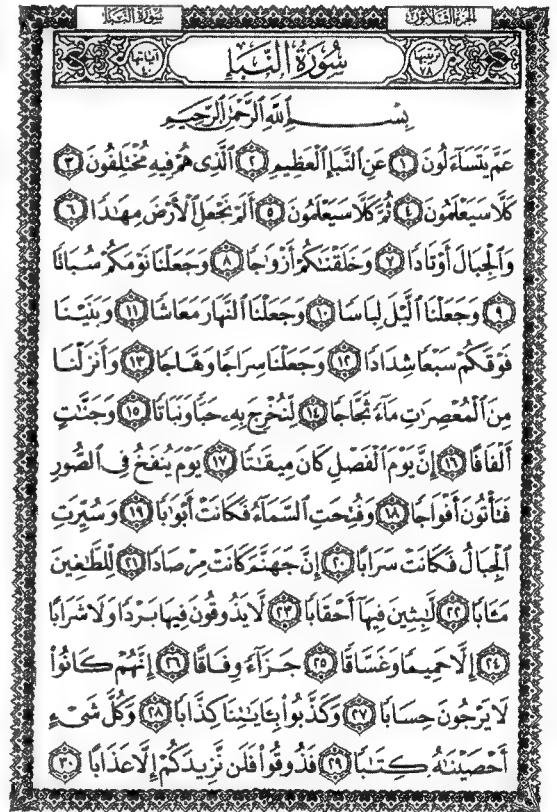 الجزء الثلاثون
سورة النبأ
ترتيبها ٧٨
سُورَةُ النَّبَإِ
آياتها ٤٠
بِسْمِ اللَّهِ الرَّحْمَٰنِ الرَّحِيمِ
عَمَّ يَتَسَآءَلُونَ ١ عَنِ النَّبَإِ الْعَظِيمِ ٢ الَّذِى هُمْ فِيهِ مُخْتَلِفُونَ ٣
كَلَّا سَيَعْلَمُونَ ٤ ثُمَّ كَلَّا سَيَعْلَمُونَ ٥ أَلَمْ نَجْعَلِ الْأَرْضَ مِهَٰدًا ٦
وَالْجِبَالَ أَوْتَادًا ٧ وَخَلَقْنَٰكُمْ أَزْوَٰجًا ٨ وَجَعَلْنَا نَوْمَكُمْ سُبَاتًا
٩ وَجَعَلْنَا الَّيْلَ لِبَاسًا ١٠ وَجَعَلْنَا النَّهَارَ مَعَاشًا ١١ وَبَنَيْنَا
فَوْقَكُمْ سَبْعًا شِدَادًا ١٢ وَجَعَلْنَا سِرَاجًا وَهَّاجًا ١٣ وَأَنزَلْنَا
مِنَ الْمُعْصِرَٰتِ مَآءً ثَجَّاجًا ١٤ لِّنُخْرِجَ بِهِۦ حَبًّا وَنَبَاتًا ١٥ وَجَنَّٰتٍ
أَلْفَافًا ١٦ إِنَّ يَوْمَ الْفَصْلِ كَانَ مِيقَٰتًا ١٧ يَوْمَ يُنفَخُ فِى الصُّورِ
فَتَأْتُونَ أَفْوَاجًا ١٨ وَفُتِحَتِ السَّمَآءُ فَكَانَتْ أَبْوَٰبًا ١٩ وَسُيِّرَتِ
الْجِبَالُ فَكَانَتْ سَرَابًا ٢٠ إِنَّ جَهَنَّمَ كَانَتْ مِرْصَادًا ٢١ لِّلطَّٰغِينَ
مَـَٔابًا ٢٢ لَّٰبِثِينَ فِيهَآ أَحْقَابًا ٢٣ لَّا يَذُوقُونَ فِيهَا بَرْدًا وَلَا شَرَابًا
٢٤ إِلَّا حَمِيمًا وَغَسَّاقًا ٢٥ جَزَآءً وِفَاقًا ٢٦ إِنَّهُمْ كَانُوا۟
لَا يَرْجُونَ حِسَابًا ٢٧ وَكَذَّبُوا۟ بِـَٔايَٰتِنَا كِذَّابًا ٢٨ وَكُلَّ شَىْءٍ
أَحْصَيْنَٰهُ كِتَٰبًا ٢٩ فَذُوقُوا۟ فَلَن نَّزِيدَكُمْ إِلَّا عَذَابًا ٣٠